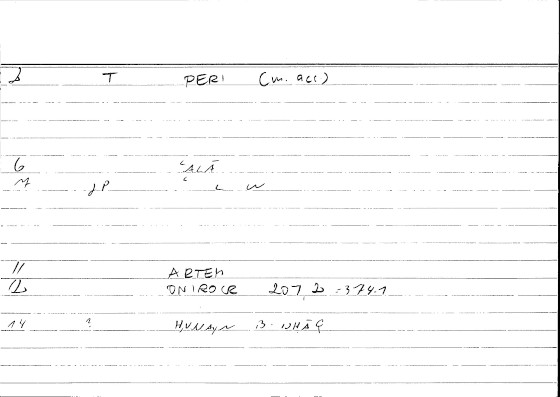 2 T PERI (m. acc)
6 ʿALĀ
M JP ʿ L W
11 ARTEM
12 ONIROCR 207,2 = 374.1
14 ? ḤUNAYN B. ISḤĀQ